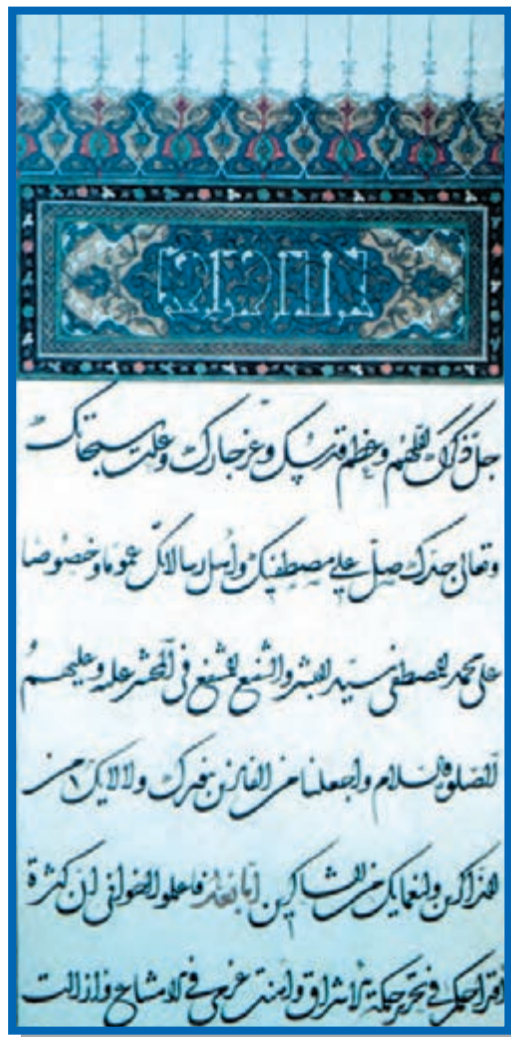 جل ذكرك اللهم وعظم قدسك وعز جارك وعلت سبحاتك
وتعالى جدك صل على مصطفيك وأهل رسالاتك عموما وخصوصا
على محمد المصطفى سيد البشر والشفيع المشفع فى المحشر عليه وعليهم
الصلوة والسلام واجعلنا من الفائزين بنورك ولآلائك من
الذاكرين ولنعمايك من الشاكرين اما بعد فاعلموا اخوانى ان كثرة
اقتراحكم فى تحرير حكمة الاشراق وأوهنت عزمى فى الامتناع وازالت